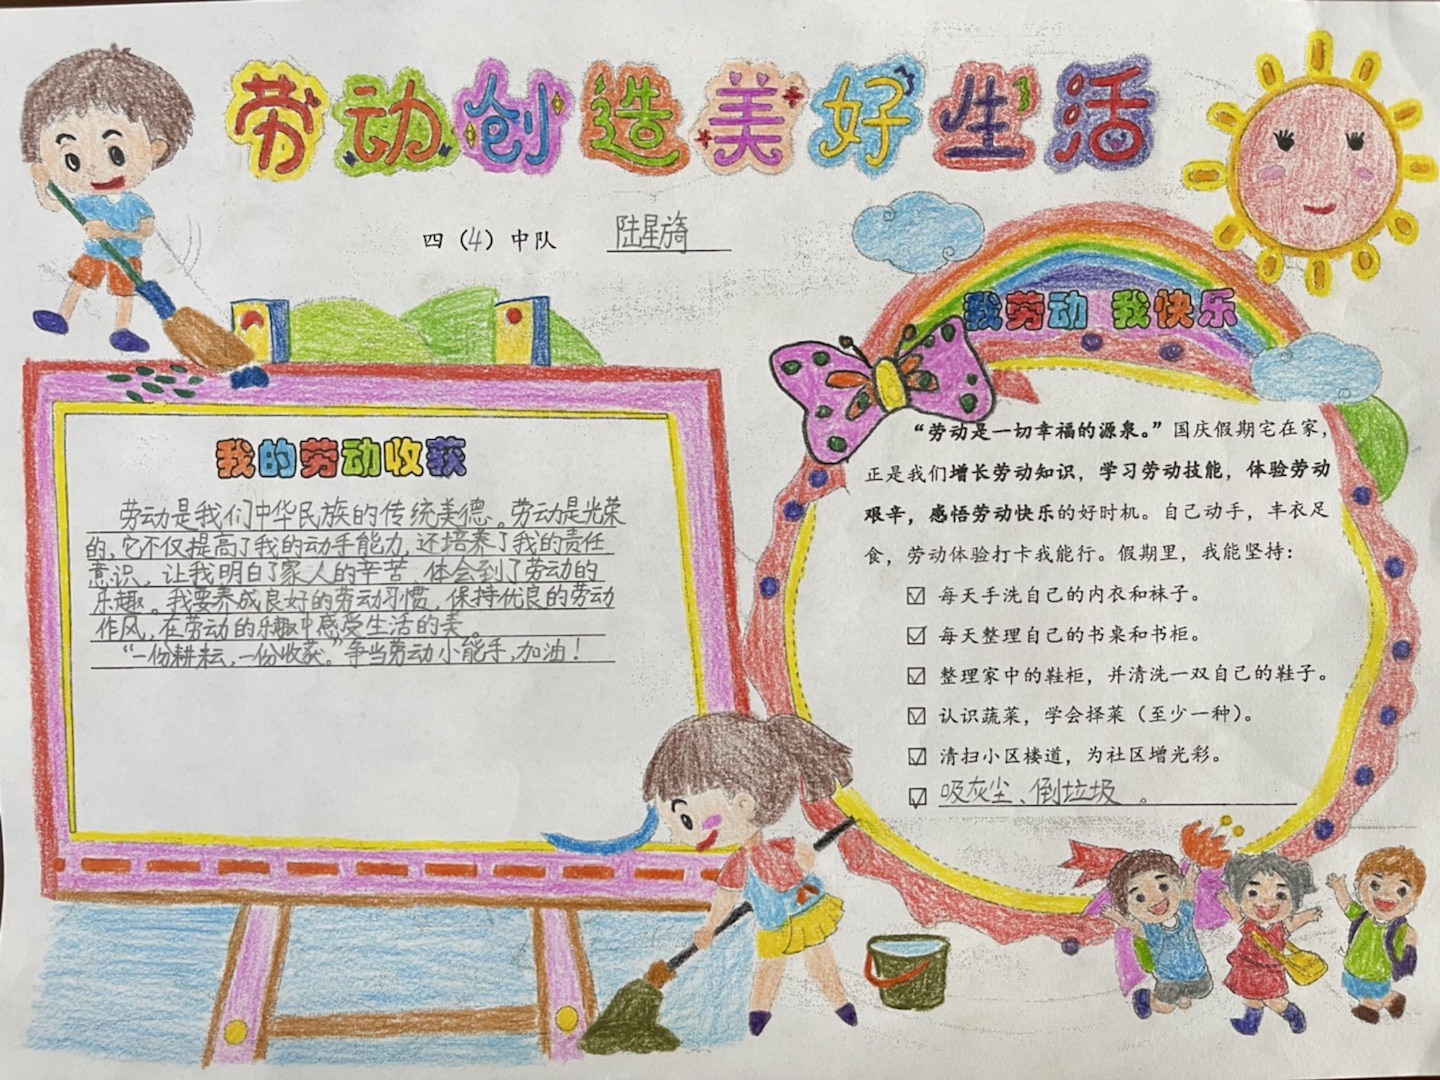 劳动创造美好生活
四（4）中队 陆星旖
我的劳动收获
劳动是我们中华民族的传统美德。劳动是光荣
的，它不仅提高了我的动手能力，还培养了我的责任
意识，让我明白了家人的辛苦、体会到了劳动的
乐趣。我要养成良好的劳动习惯，保持优良的劳动
作风，在劳动的乐趣中感受生活的美。
“一份耕耘，一份收获。”争当劳动小能手，加油！
我劳动 我快乐
“劳动是一切幸福的源泉。”国庆假期宅在家，
正是我们增长劳动知识，学习劳动技能，体验劳动
艰辛，感悟劳动快乐的好时机。自己动手，丰衣足
食，劳动体验打卡我能行。假期里，我能坚持：
☑ 每天手洗自己的内衣和袜子。
☑ 每天整理自己的书桌和书柜。
☑ 整理家中的鞋柜，并清洗一双自己的鞋子。
☑ 认识蔬菜，学会择菜（至少一种）。
☑ 清扫小区楼道，为社区增光彩。
☑ 吸灰尘、倒垃圾。